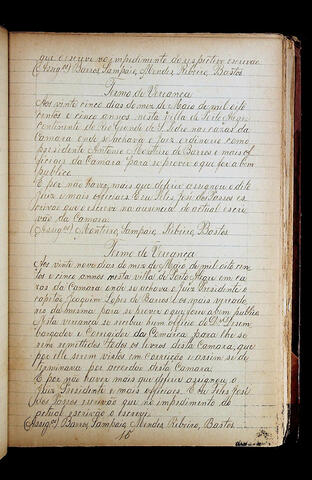 que escrevo no impedimento do respectivo escrivão
(Assigos) Barros, Sampaio, Mendes Ribeiro, Bastos
Termo de Vereança
Aos vinte cinco dias do mez de Maio de mil oito
centos e cinco annos nesta Villa de Porto Alegre
continente do Rio Grande de S. Pedro nas cazas da
Camara onde se achava o Juiz ordinario como
presidente Antonio de Barros e mais of-
ficiaes da Camara para se prover o que for a bem
publico
E por não haver mais que deferir assignou o dito
Juiz e mais officiaes. Eu Felis José dos Passos es-
crivão que o escrevo na ausencia do actual escri-
vão da Camara.
(Assigos) Monteiro, Sampaio, Ribeiro, Bastos
Termo de Vereança
Aos vinte nove dias do mez de Maio de mil oito cen-
tos e cinco annos nesta villa de Porto Alegre em ca-
zas da Camara onde se achava o Juiz Presidente o
capitão Joaquim Lopes de Barros e os mais vereado-
res da mesma para se prover o que fosse a bem publico
Nesta vereança se recebeu hum officio do Dr. Desem-
bargador e Corregedor da Comarca para lhe se-
rem remettidos todos os livros desta Camara, que
por elle serem vistos em correição e assim se de-
terminava por accordão desta Camara.
E por não haver mais que deferir assignou o
Juiz Presidente e mais officiaes. E eu Felis José
dos Passos escrivão que no impedimento do
actual escrivão o escrevi.
(Assigos) Barros, Sampaio, Mendes Ribeiro, Bastos.